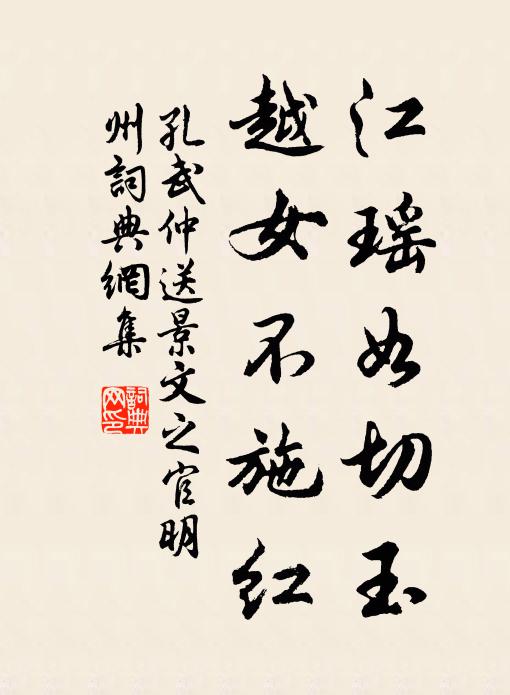 江瑶如切玉
越女不施红
孔武仲送景文之官明
州詞典網集
詞典
网印